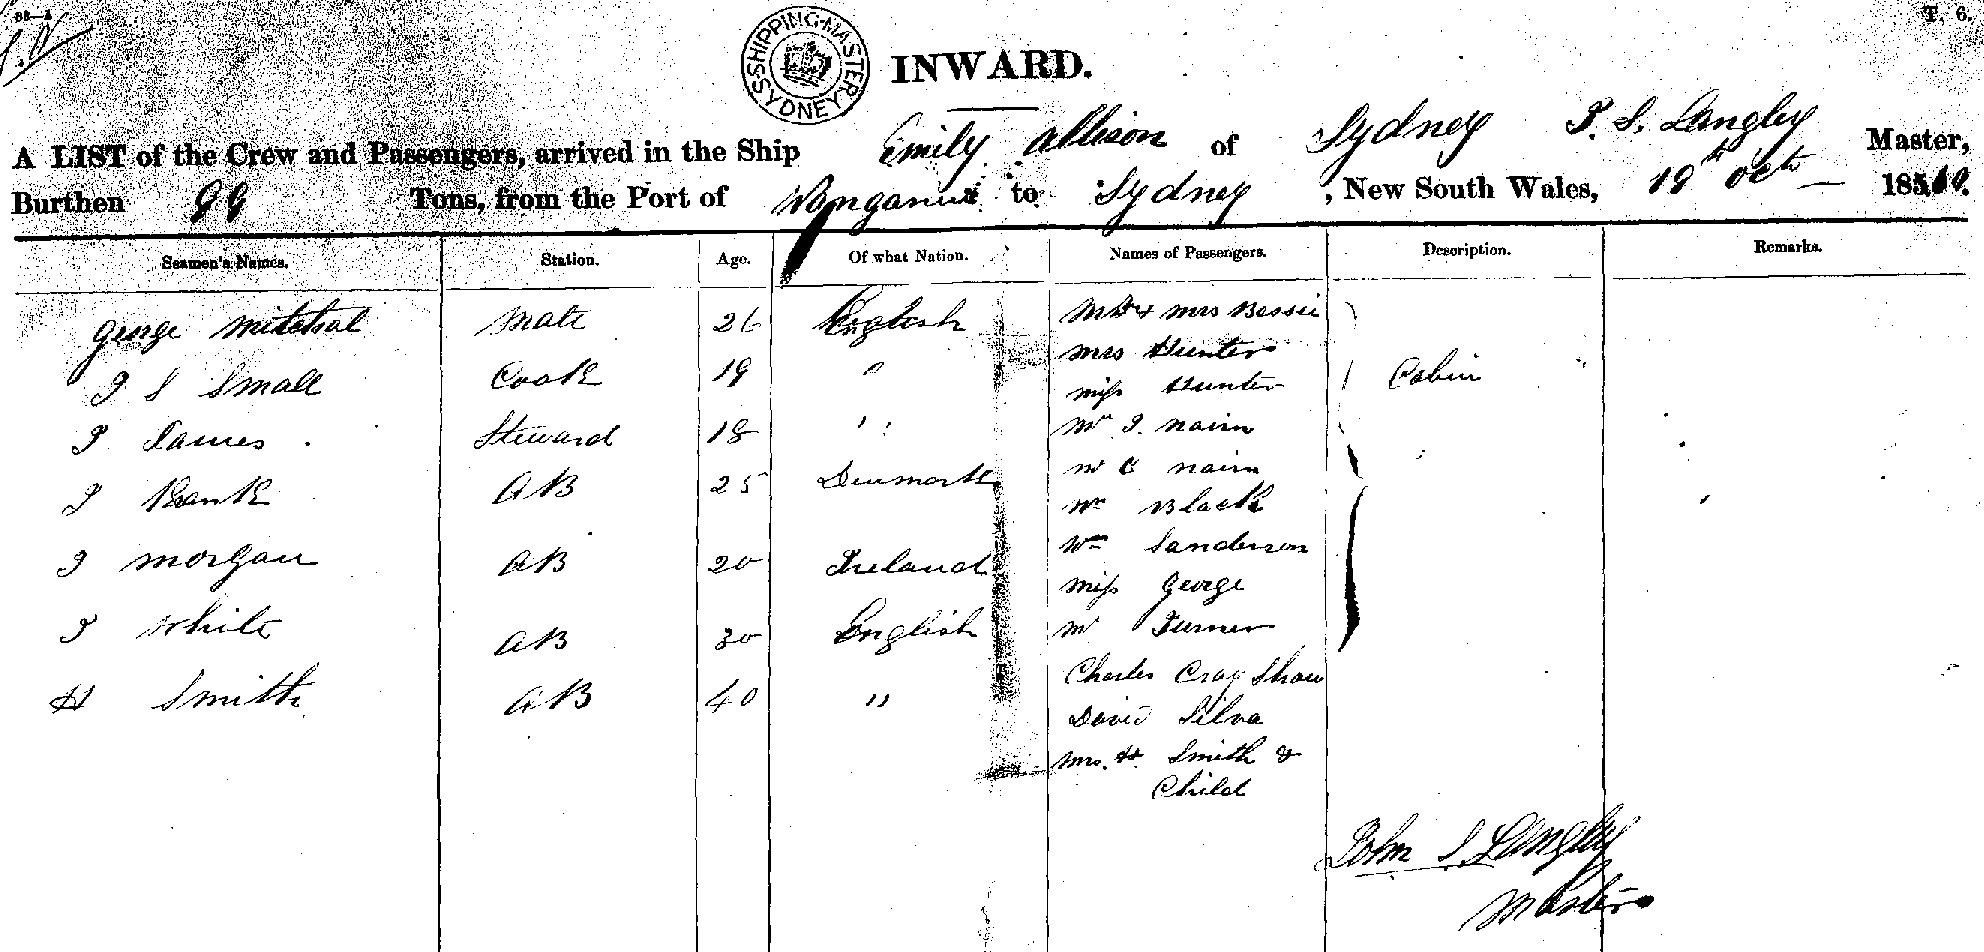 T. 6.
SHIPPING MASTER SYDNEY
INWARD.
A LIST of the Crew and Passengers, arrived in the Ship Emily Allison of Sydney J. S. Langley Master,
Burthen 99 Tons, from the Port of Wanganui to Sydney, New South Wales, 19th Oct 18
Seamen's Names. Station. Age. Of what Nation. Names of Passengers. Description. Remarks.
George Mitchal Mate 26 English Mr & Mrs Bessie
Mrs Hunter
J S Small Cook 19 " Miss Hunter Cabin
J James Steward 18 " Mr J. Nairn
Mr C Nairn
J AB 25 Denmark Mr Black
J Morgan AB 20 Ireland Wm Sanderson
Miss George
J White AB 30 English Mr Turner
Charles Cray Shaw
H Smith AB 40 " David Silva
Mrs. H. Smith &
Child
John S Langley
Master